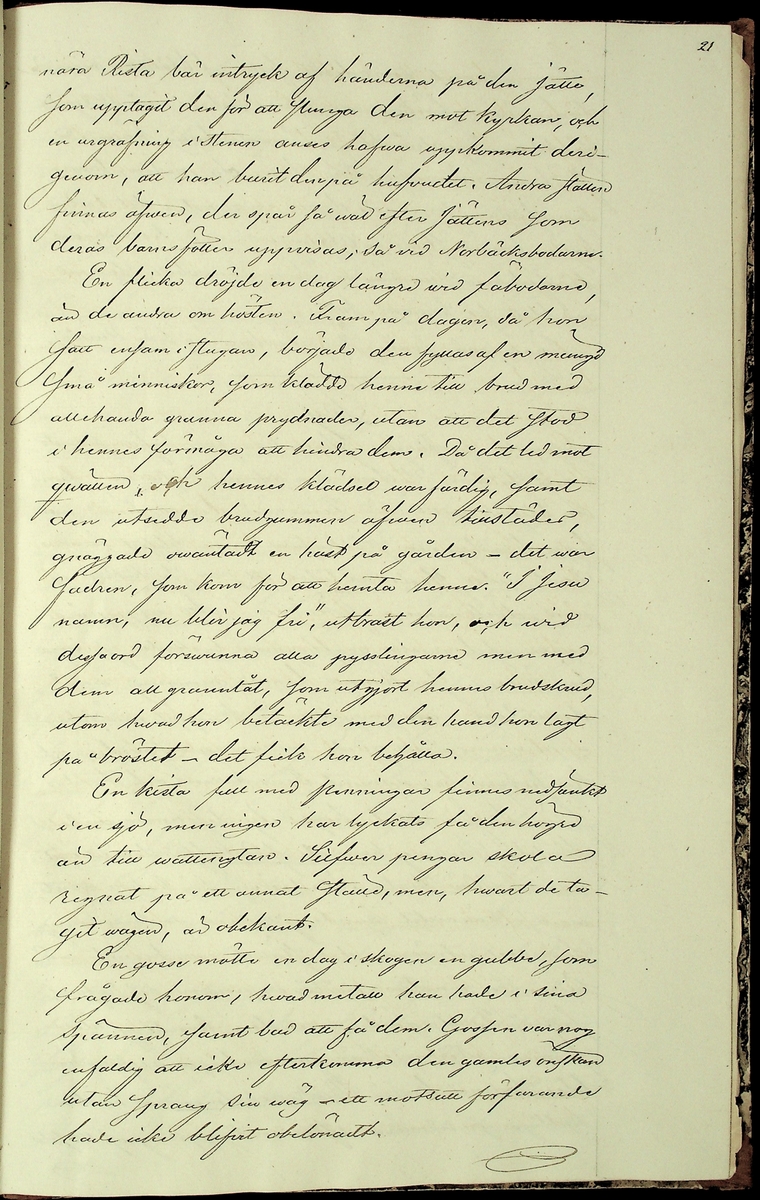 21
nära Rista bär intryck af händerna på den jätte,
som upptagit den för att slunga den mot kyrkan, och
en urgräfning i stenen anses hafwa uppkommit deri-
genom, att han burit den på hufvudet. Andra ställen
finnas äfwen, der spår så wäl efter jättens som
deras barns fötter uppvisas, så vid Norbäcksbodarne.
En flicka dröjde en dag längre wid fäbodarne,
än de andra om hösten. Fram på dagen, då hon
satt ensam i stugan, började den fyllas af en mängd
små menniskor, som klädde henne till brud med
allehanda granna prydnader, utan att det stod
i hennes förmåga att hindra dem. Då det led mot
qwällen, och hennes klädsel war färdig, samt
den utsedde brudgummen äfwen tillstädes,
gnäggade owäntadt en häst på gården – det war
fadren, som kom för att hemta henne. "I Jesu
namn, nu blir jag fri", utbrast hon, och wid
dessa ord förswunno alla pysslingarne men med
dem all grannlåt, som utgjort hennes brudskrud,
utom hwad hon betäckte med den hand hon lagt
på bröstet – det fick hon behålla.
En kista full med penningar finnes nedsänkt
i en sjö, men ingen har lyckats få den högre
än till wattenytan. Silfwer pengar skola
regnat på ett annat ställe, men, hwart de ta-
git wägen, är obekant.
En gosse mötte en dag i skogen en gubbe, som
frågade honom, hwad metall han hade i sina
spännen, samt bad att få dem. Gossen var nog
enfaldig att icke efterkomma den gamles önskan
utan sprang sin wäg – ett motsatt förfarande
hade icke blifvit obelönadt.